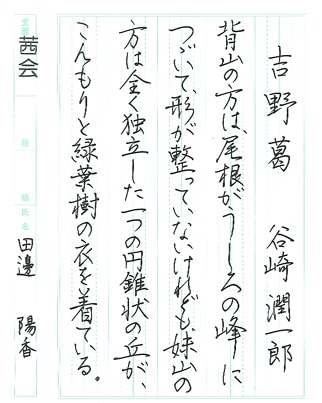 吉野葛　谷崎潤一郎
背山の方は、尾根がうしろの峰に
つづいて、形が整っていないけれども、妹山の
方は全く独立した一つの円錐状の丘が、
こんもりと緑葉樹の衣を着ている。
支部 茜会
段
級
氏名 田邊 陽香